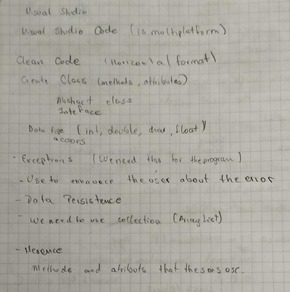 Visual Studio
Visual Studio Code (is multiplatform)
Clean Code (Horizontal format)
Create Class (methods, attributes)
Abstract class
Interface
Data type (int, double, char, float)
· Exceptions (We need this for the program)
- Use to announce the user about the error
- Data Persistence
We need to use collection (Array List)
-
Methods and atributs that the sons use.